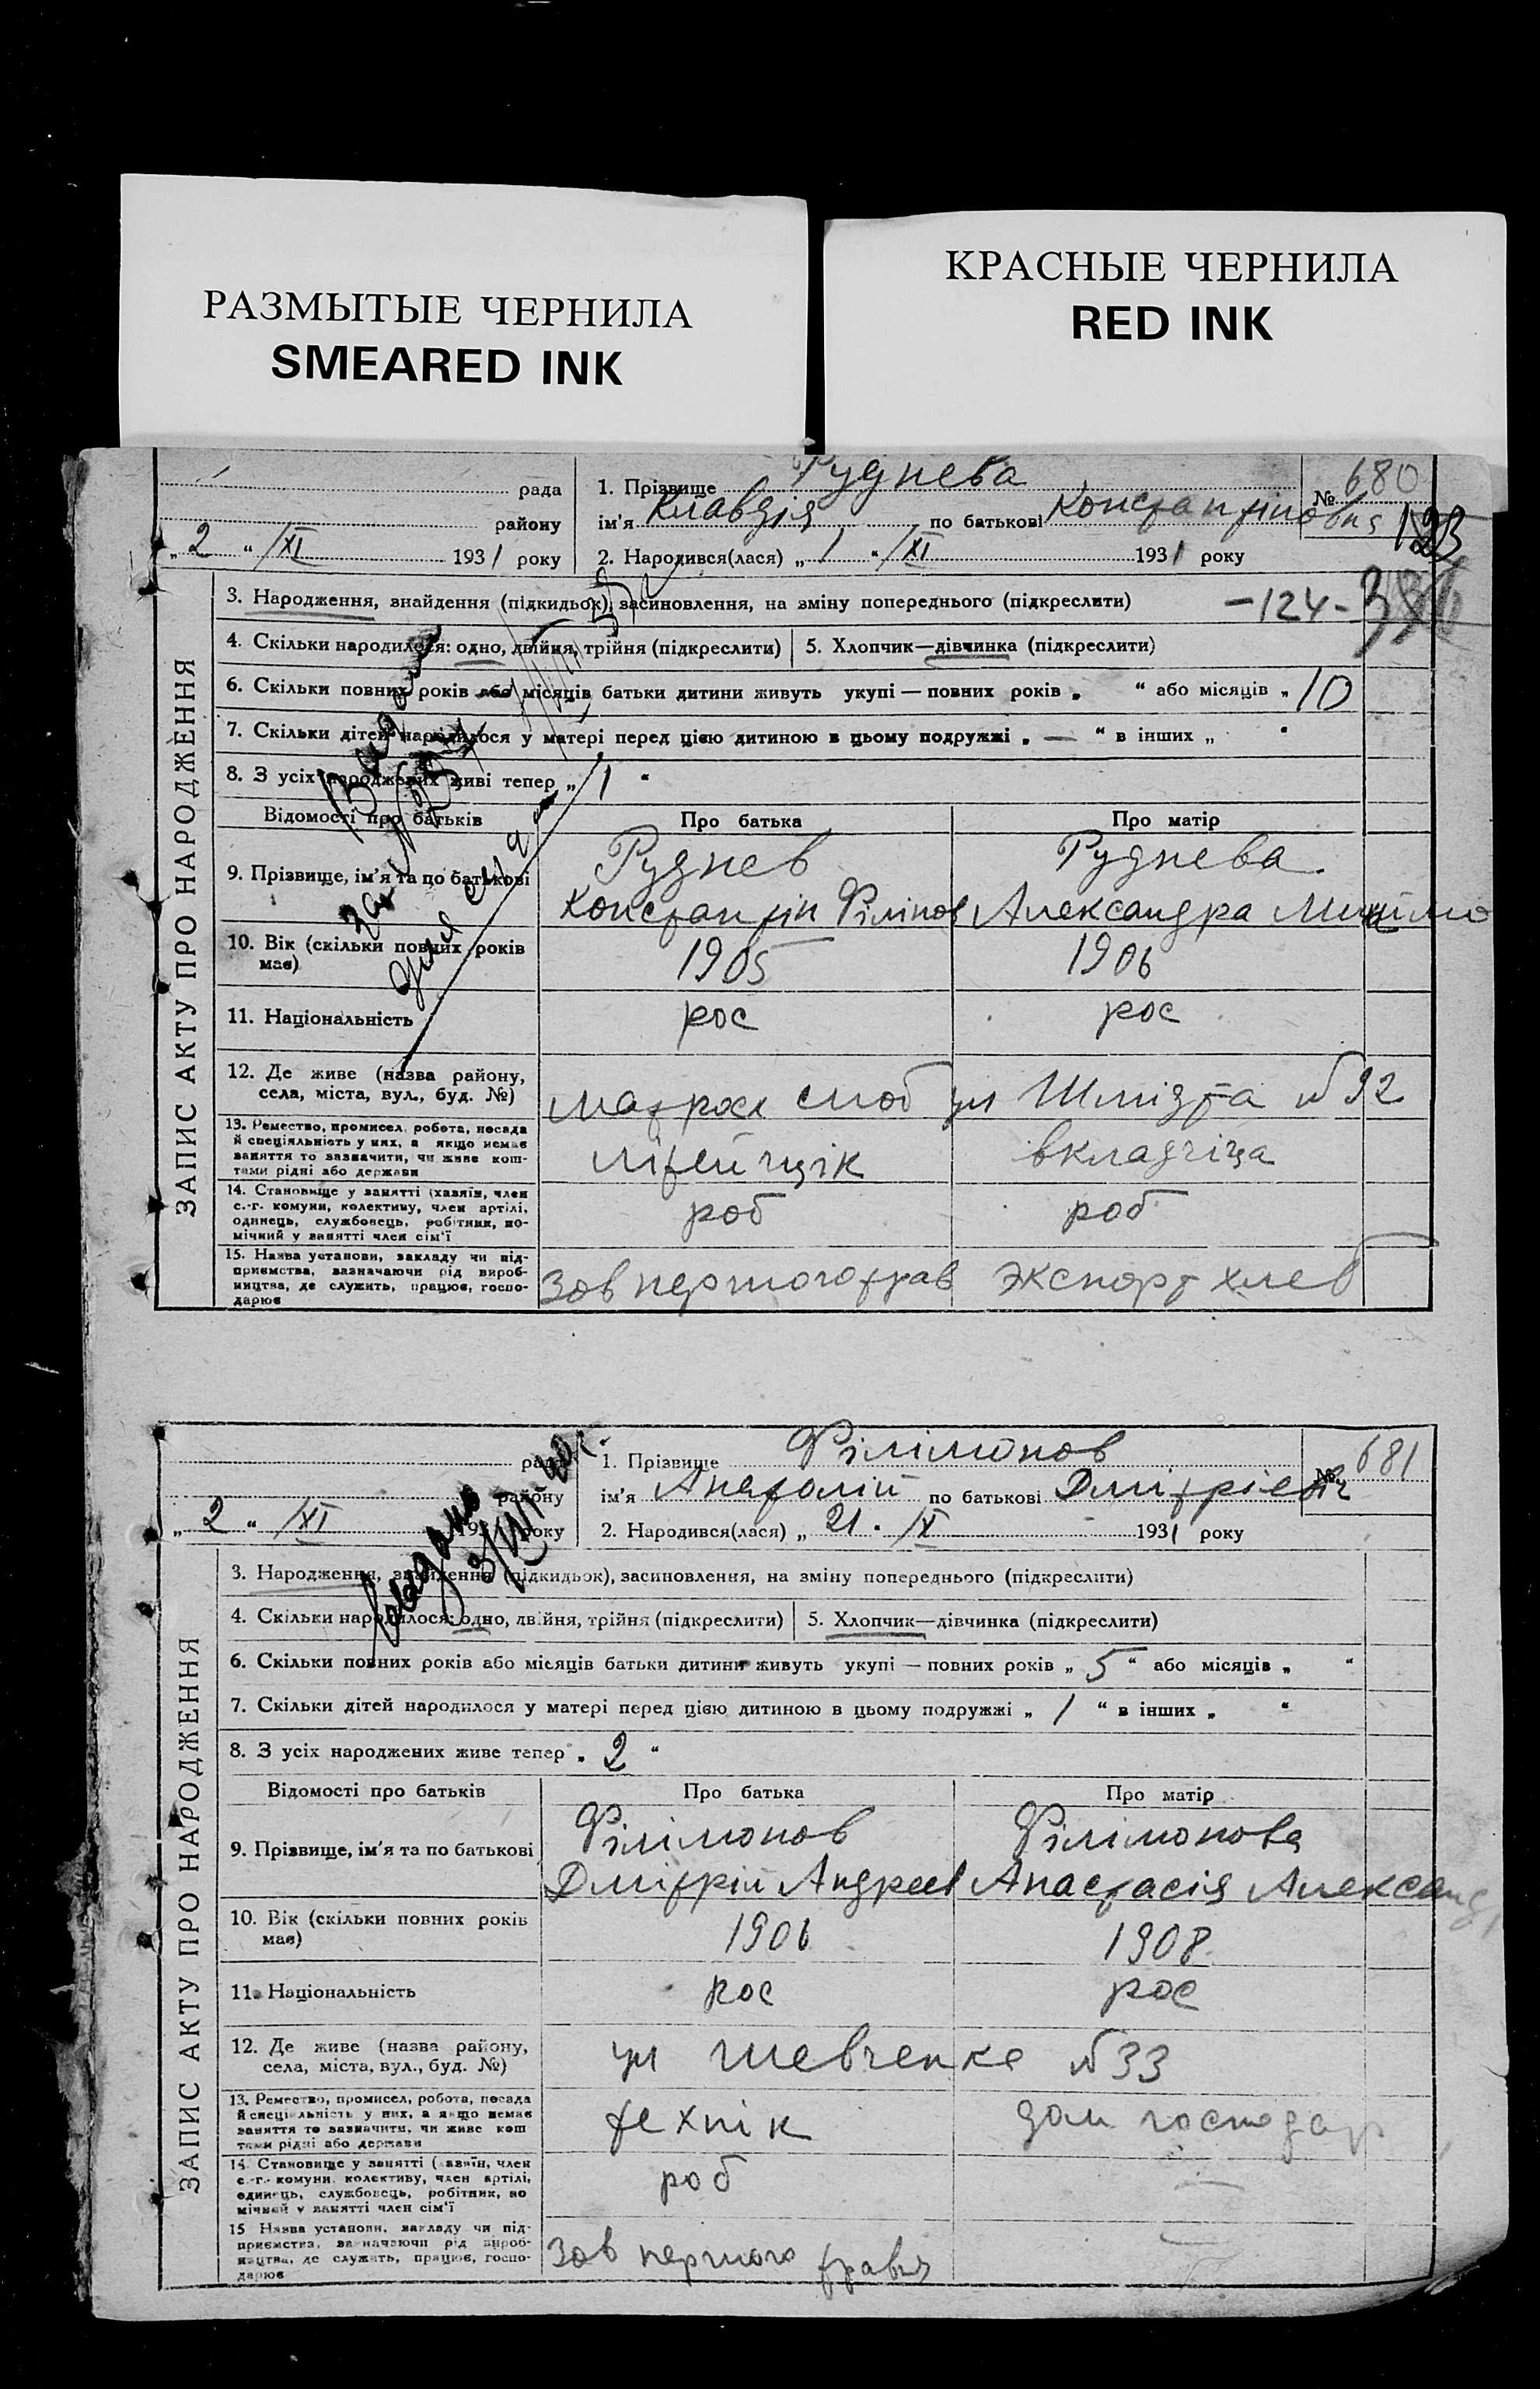 РАЗМЫТЫЕ ЧЕРНИЛА
SMEARED INK
КРАСНЫЕ ЧЕРНИЛА
RED INK
рада
району
„ 2 “ /XI 1931 року
1. Прізвище Руднева
ім'я Клавдія по батькові Константіновня
2. Народився(лася) „ 1 “ /XI 1931 року
№ 680
123
ЗАПИС АКТУ ПРО НАРОДЖЕННЯ
3. Народження, знайдення (підкидьок), засиновлення, на зміну попереднього (підкреслити)
-124-
4. Скільки народилося: одно, двійня, трійня (підкреслити) 5. Хлопчик—дівчинка (підкреслити)
6. Скільки повних років або місяців батьки дитини живуть укупі — повних років „ “ або місяців „ 10
7. Скільки дітей народилося у матері перед цією дитиною в цьому подружжі „ — “ в інших „ “
8. З усіх народжених живі тепер „ 1 “
Відомості про батьків Про батька Про матір
9. Прізвище, ім'я та по батькові
Руднев
Константін Філіпов
Руднева
Александра
10. Вік (скільки повних років має) 1905 1906
11. Національність рос рос
12. Де живе (назва району, села, міста, вул., буд. №)
матроск слоб ул Шмідта №92
13. Ремество, промисел, робота, посада й спеціяльність у них, а якщо немає заняття то зазначити, чи живе коштами рідні або держави
літейщік вкладчіца
14. Становище у занятті (хазяїн, член с.-г. комуни, колективу, член артілі, одинець, службовець, робітник, помічний у занятті член сім'ї
роб роб
15. Назва установи, закладу чи підприємства, зазначаючи рід виробництва, де служить, працює, господарює
Зав першого трав Экспорт хлеб
рада
району
„ 2 “ /XI 1931 року
1. Прізвище Філімонов
ім'я Анатолій по батькові Дмітріевіч
2. Народився(лася) „ 21 “ /X 1931 року
№ 681
ЗАПИС АКТУ ПРО НАРОДЖЕННЯ
3. Народження, знайдення (підкидьок), засиновлення, на зміну попереднього (підкреслити)
4. Скільки народилося: одно, двійня, трійня (підкреслити) 5. Хлопчик—дівчинка (підкреслити)
6. Скільки повних років або місяців батьки дитини живуть укупі — повних років „ 5 “ або місяців „ “
7. Скільки дітей народилося у матері перед цією дитиною в цьому подружжі „ 1 “ в інших „ “
8. З усіх народжених живе тепер „ 2 “
Відомості про батьків Про батька Про матір
9. Прізвище, ім'я та по батькові
Філімонов
Дмітрій Андреев
Філімонова
Анастасія Александ
10. Вік (скільки повних років має) 1906 1908
11. Національність рос рос
12. Де живе (назва району, села, міста, вул., буд. №)
ул Шевченке №33
13. Ремество, промисел, робота, посада й спеціяльність у них, а якщо немає заняття то зазначити, чи живе коштами рідні або держави
технік дом господар
14. Становище у занятті (хазяїн, член с.-г. комуни, колективу, член артілі, одинець, службовець, робітник, помічний у занятті член сім'ї
роб —
15. Назва установи, закладу чи підприємства, зазначаючи рід виробництва, де служить, працює, господарює
Зав першого травня